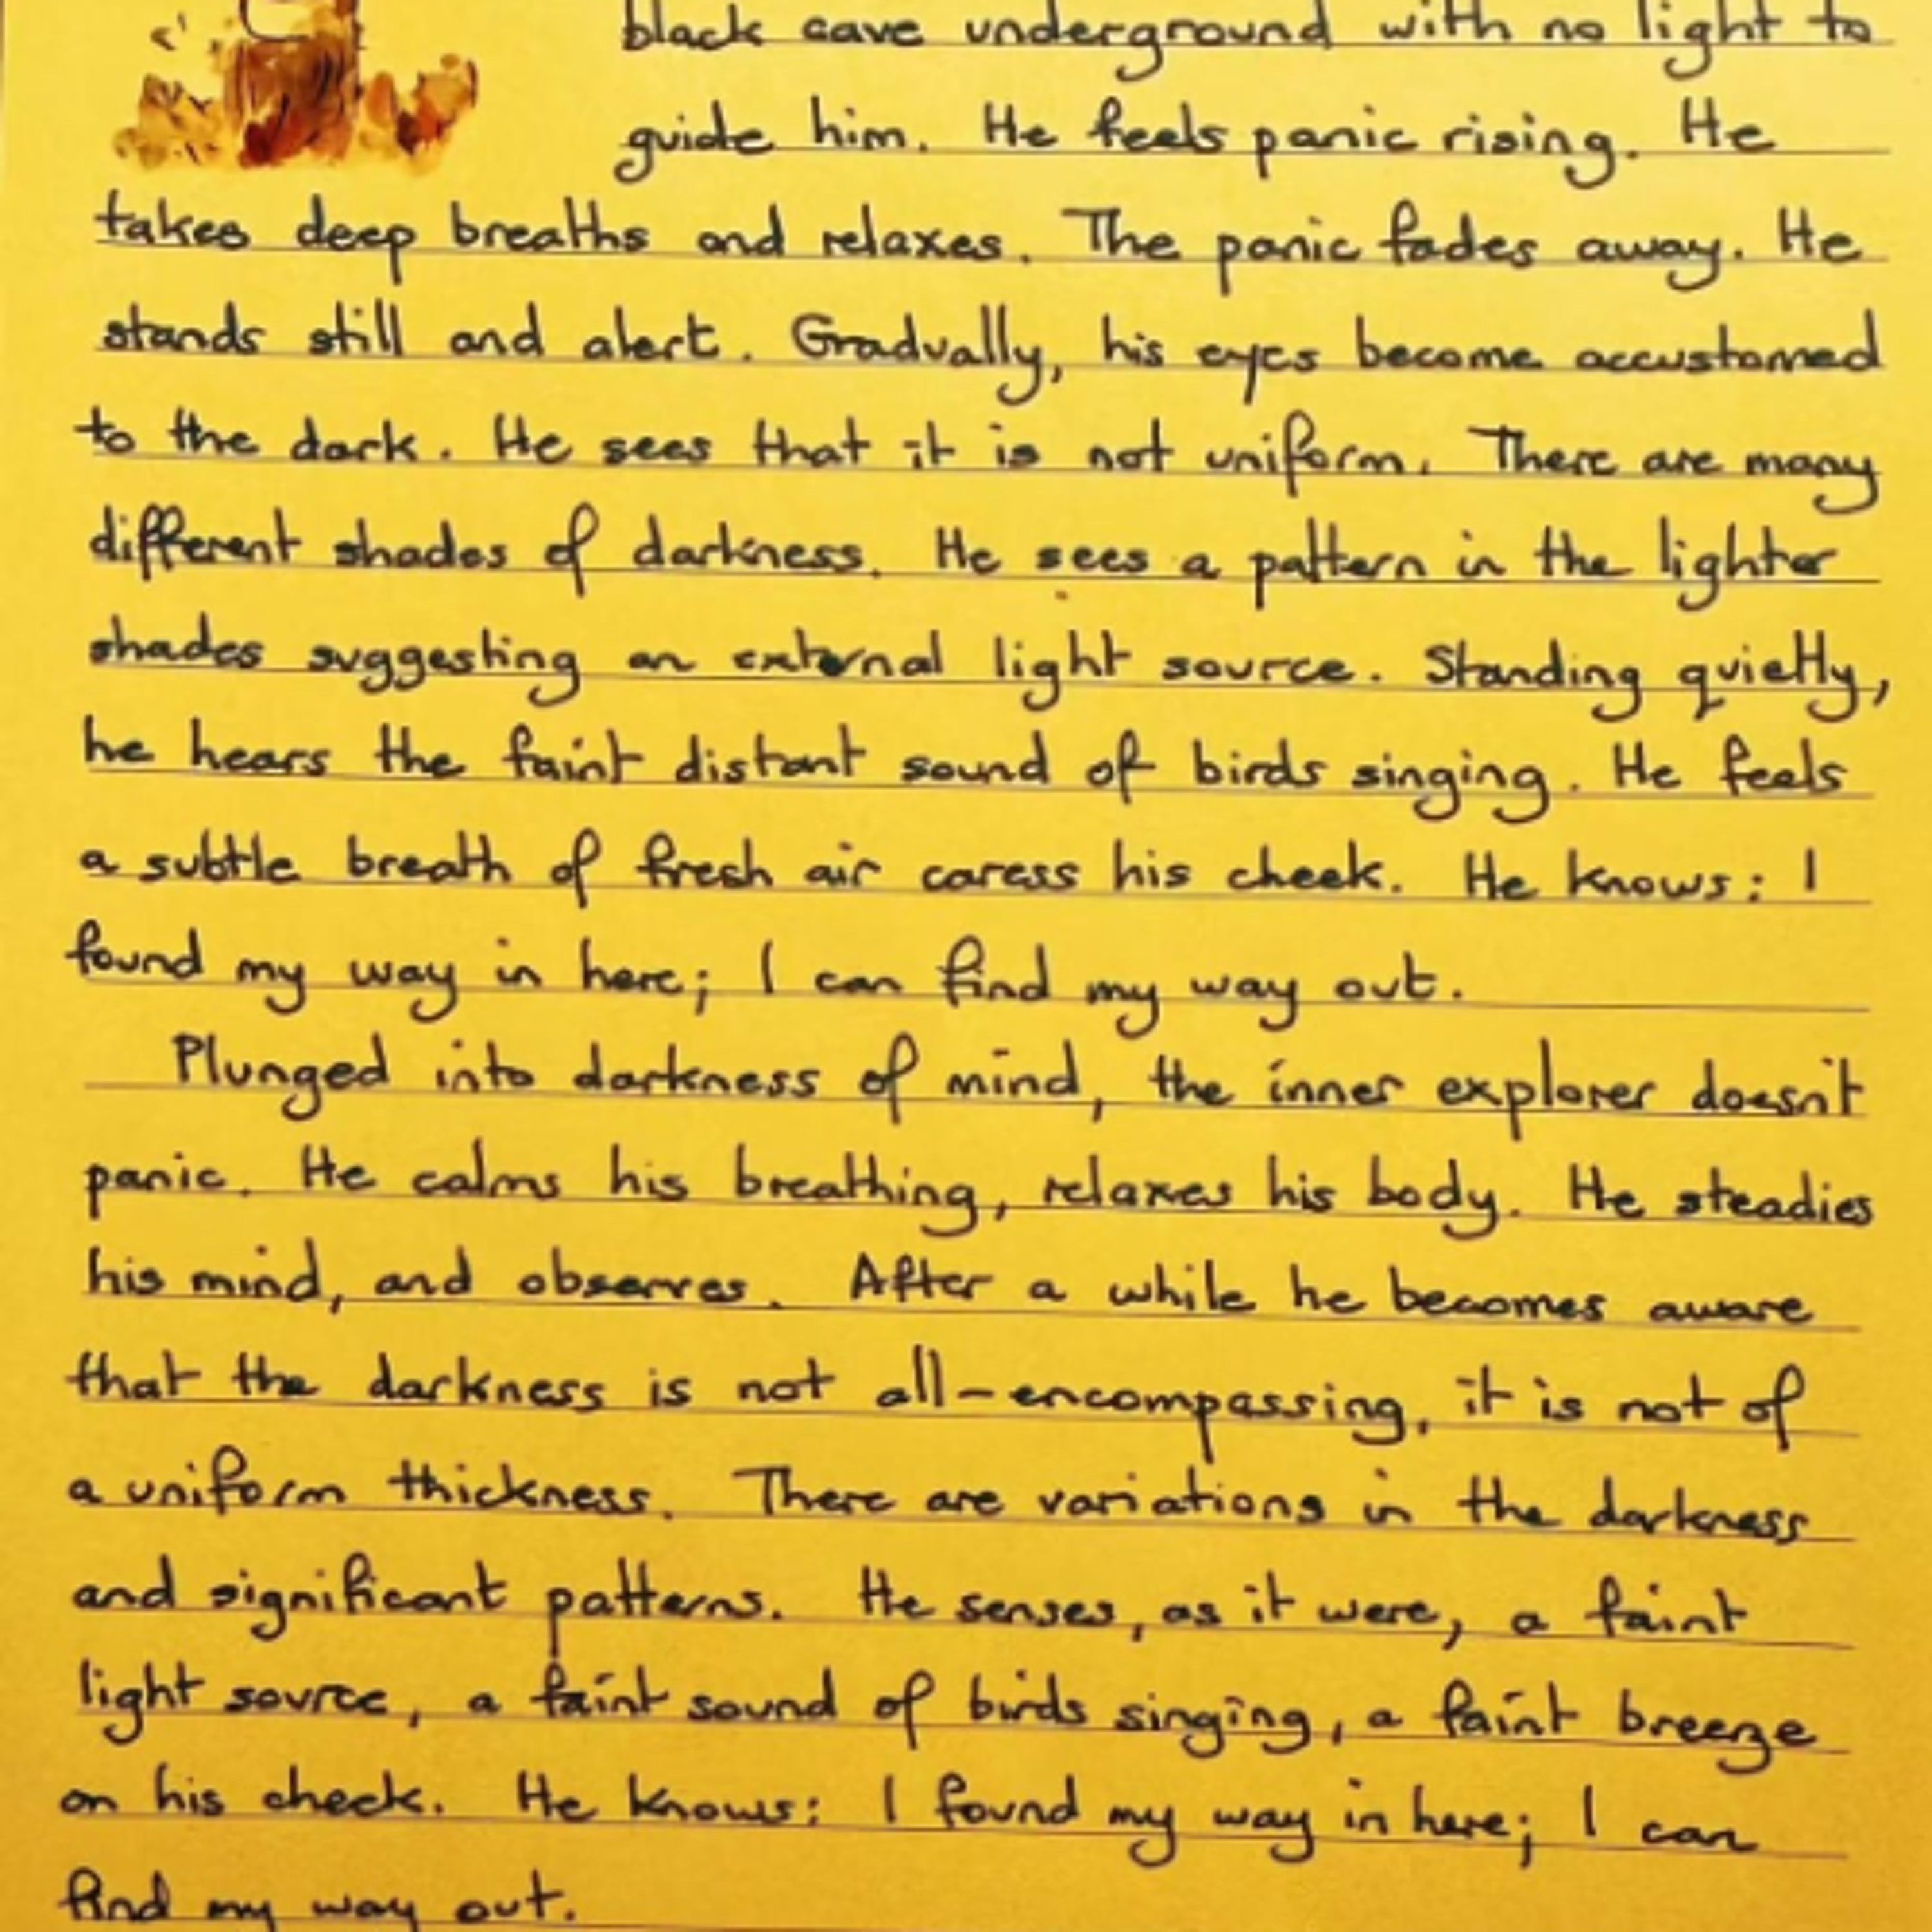 black cave underground with no light to
guide him. He feels panic rising. He
takes deep breaths and relaxes. The panic fades away. He
stands still and alert. Gradually, his eyes become accustomed
to the dark. He sees that it is not uniform. There are many
different shades of darkness. He sees a pattern in the lighter
shades suggesting an external light source. Standing quietly,
he hears the faint distant sound of birds singing. He feels
a subtle breath of fresh air caress his cheek. He knows: I
found my way in here; I can find my way out.
Plunged into darkness of mind, the inner explorer doesn't
panic. He calms his breathing, relaxes his body. He steadies
his mind, and observes. After a while he becomes aware
that the darkness is not all-encompassing, it is not of
a uniform thickness. There are variations in the darkness
and significant patterns. He senses, as it were, a faint
light source, a faint sound of birds singing, a faint breeze
on his cheek. He knows: I found my way in here; I can
find my way out.